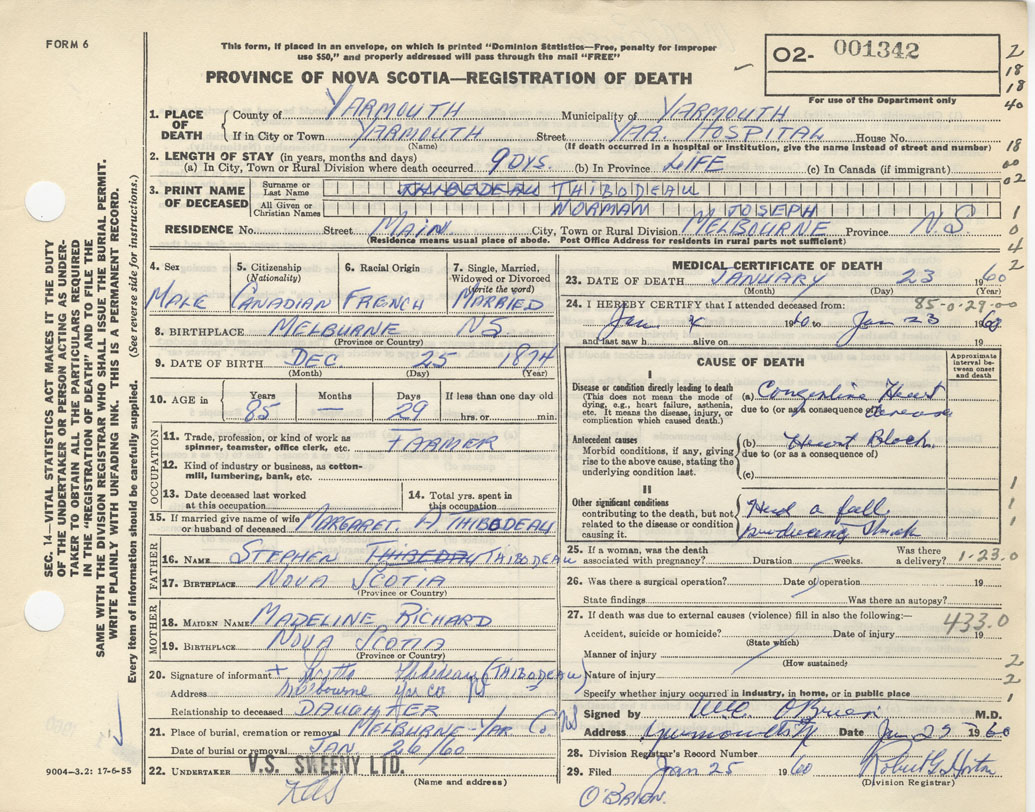 FORM 6
This form, if placed in an envelope, on which is printed "Dominion Statistics—Free, penalty for improper
use $50," and properly addressed will pass through the mail "FREE"
PROVINCE OF NOVA SCOTIA—REGISTRATION OF DEATH
O2- 001342
For use of the Department only
2
18
18
40
18
00
02
1
0
4
2
1. PLACE OF DEATH
County of YARMOUTH Municipality of YARMOUTH
If in City or Town YARMOUTH Street YAR. HOSPITAL House No.
(Name) (If death occurred in a hospital or institution, give the name instead of street and number)
2. LENGTH OF STAY (in years, months and days)
(a) In City, Town or Rural Division where death occurred 9 DYS. (b) In Province LIFE (c) In Canada (if immigrant)
3. PRINT NAME OF DECEASED
Surname or Last Name THIBODEAU THIBODEAU
All Given or Christian Names NORMAN JOSEPH
RESIDENCE No. Street MAIN. City, Town or Rural Division MELBOURNE Province N.S.
(Residence means usual place of abode. Post Office Address for residents in rural parts not sufficient)
4. Sex MALE
5. Citizenship (Nationality) CANADIAN
6. Racial Origin FRENCH
7. Single, Married, Widowed or Divorced (Write the word) MARRIED
8. BIRTHPLACE MELBURNE NS.
(Province or Country)
9. DATE OF BIRTH DEC. 25 1874
(Month) (Day) (Year)
10. AGE in Years 85 Months — Days 29 If less than one day old hrs. or min.
OCCUPATION
11. Trade, profession, or kind of work as spinner, teamster, office clerk, etc. FARMER
12. Kind of industry or business, as cotton-mill, lumbering, bank, etc.
13. Date deceased last worked at this occupation
14. Total yrs. spent in this occupation
15. If married give name of wife or husband of deceased MARGARET. H THIBODEAU
FATHER
16. NAME STEPHEN THIBEDAU THIBODEAU
17. BIRTHPLACE NOVA SCOTIA
(Province or Country)
MOTHER
18. MAIDEN NAME MADELINE RICHARD
19. BIRTHPLACE NOVA SCOTIA
(Province or Country)
20. Signature of informant + Thibideau (THIBODEAU)
Address Melbourne Yar Co NS
Relationship to deceased DAUGHTER
21. Place of burial, cremation or removal MELBURNE-YAR Co NS
Date of burial or removal JAN 26/60
22. UNDERTAKER V.S. SWEENY LTD.
(Name and address)
MEDICAL CERTIFICATE OF DEATH
23. DATE OF DEATH JANUARY 23 1960
(Month) (Day) (Year)
85-0-29-00
24. I HEREBY CERTIFY that I attended deceased from:
Jan 4 1960 to Jan 23 1960
and last saw h alive on 19
CAUSE OF DEATH
Approximate interval between onset and death
I
Disease or condition directly leading to death
(This does not mean the mode of dying, e.g., heart failure, asthenia, etc. It means the disease, injury, or complication which caused death.)
(a) Heart Disease
due to (or as a consequence of)
Antecedent causes
Morbid conditions, if any, giving rise to the above cause, stating the underlying condition last.
(b) Heart Block
due to (or as a consequence of)
(c)
II
Other significant conditions
contributing to the death, but not related to the disease or condition causing it.
Had a fall producing shock
1
1
1
25. If a woman, was the death associated with pregnancy? Duration weeks. Was there a delivery? 1-23.0
26. Was there a surgical operation? Date of operation 19
State findings Was there an autopsy?
27. If death was due to external causes (violence) fill in also the following:—
433.0
Accident, suicide or homicide? Date of injury 19
(State which)
Manner of injury
(How sustained)
Nature of injury
Specify whether injury occurred in industry, in home, or in public place
2
2
1
Signed by O'Brien M.D.
Address Yarmouth NS Date Jan 25 1960
28. Division Registrar's Record Number
29. Filed Jan 25 1960 Robert G. Horton
(Division Registrar)
O'BRION.
SEC. 14—VITAL STATISTICS ACT MAKES IT THE DUTY
OF THE UNDERTAKER OR PERSON ACTING AS UNDER-
TAKER TO OBTAIN ALL THE PARTICULARS REQUIRED
IN THE "REGISTRATION OF DEATH" AND TO FILE THE
SAME WITH THE DIVISION REGISTRAR WHO SHALL ISSUE THE BURIAL PERMIT.
WRITE PLAINLY WITH UNFADING INK. THIS IS A PERMANENT RECORD.
Every item of information should be carefully supplied. (See reverse side for instructions.)
9004—3.2: 17-6-55